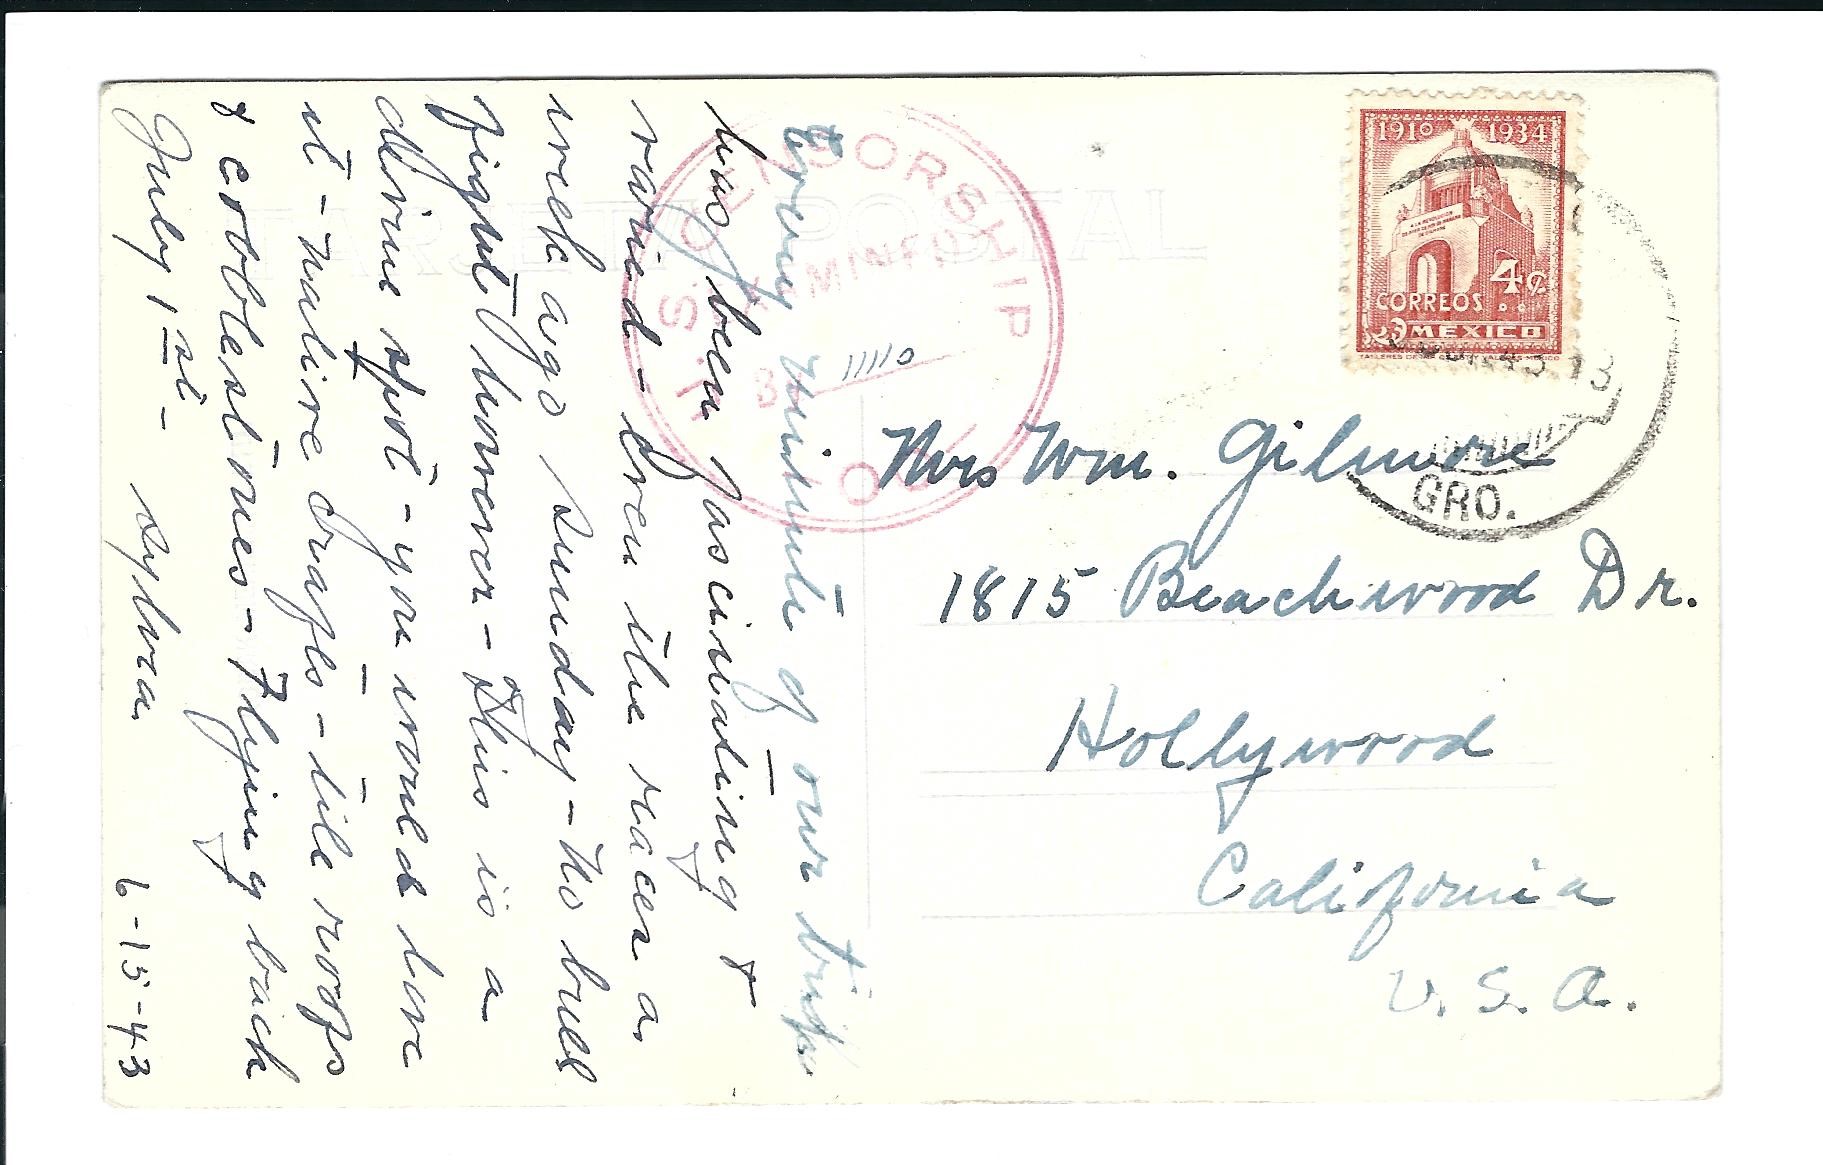 TARJETA POSTAL
Every minute of our trip
has been fascinating &
varied - even the races a
week ago Sunday - No bull
fight however - This is a
divine spot - you would love
it - native crafts - tile roofs
& cobblestones - Flying back
July 1st - Sylvia
6-15-43
U.S. CENSORSHIP
EXAMINED
BY 11110
1910 1934
4¢
CORREOS
MEXICO
GRO.
Mrs Wm. Gilmore
1815 Beachwood Dr.
Hollywood
California
U.S.A.